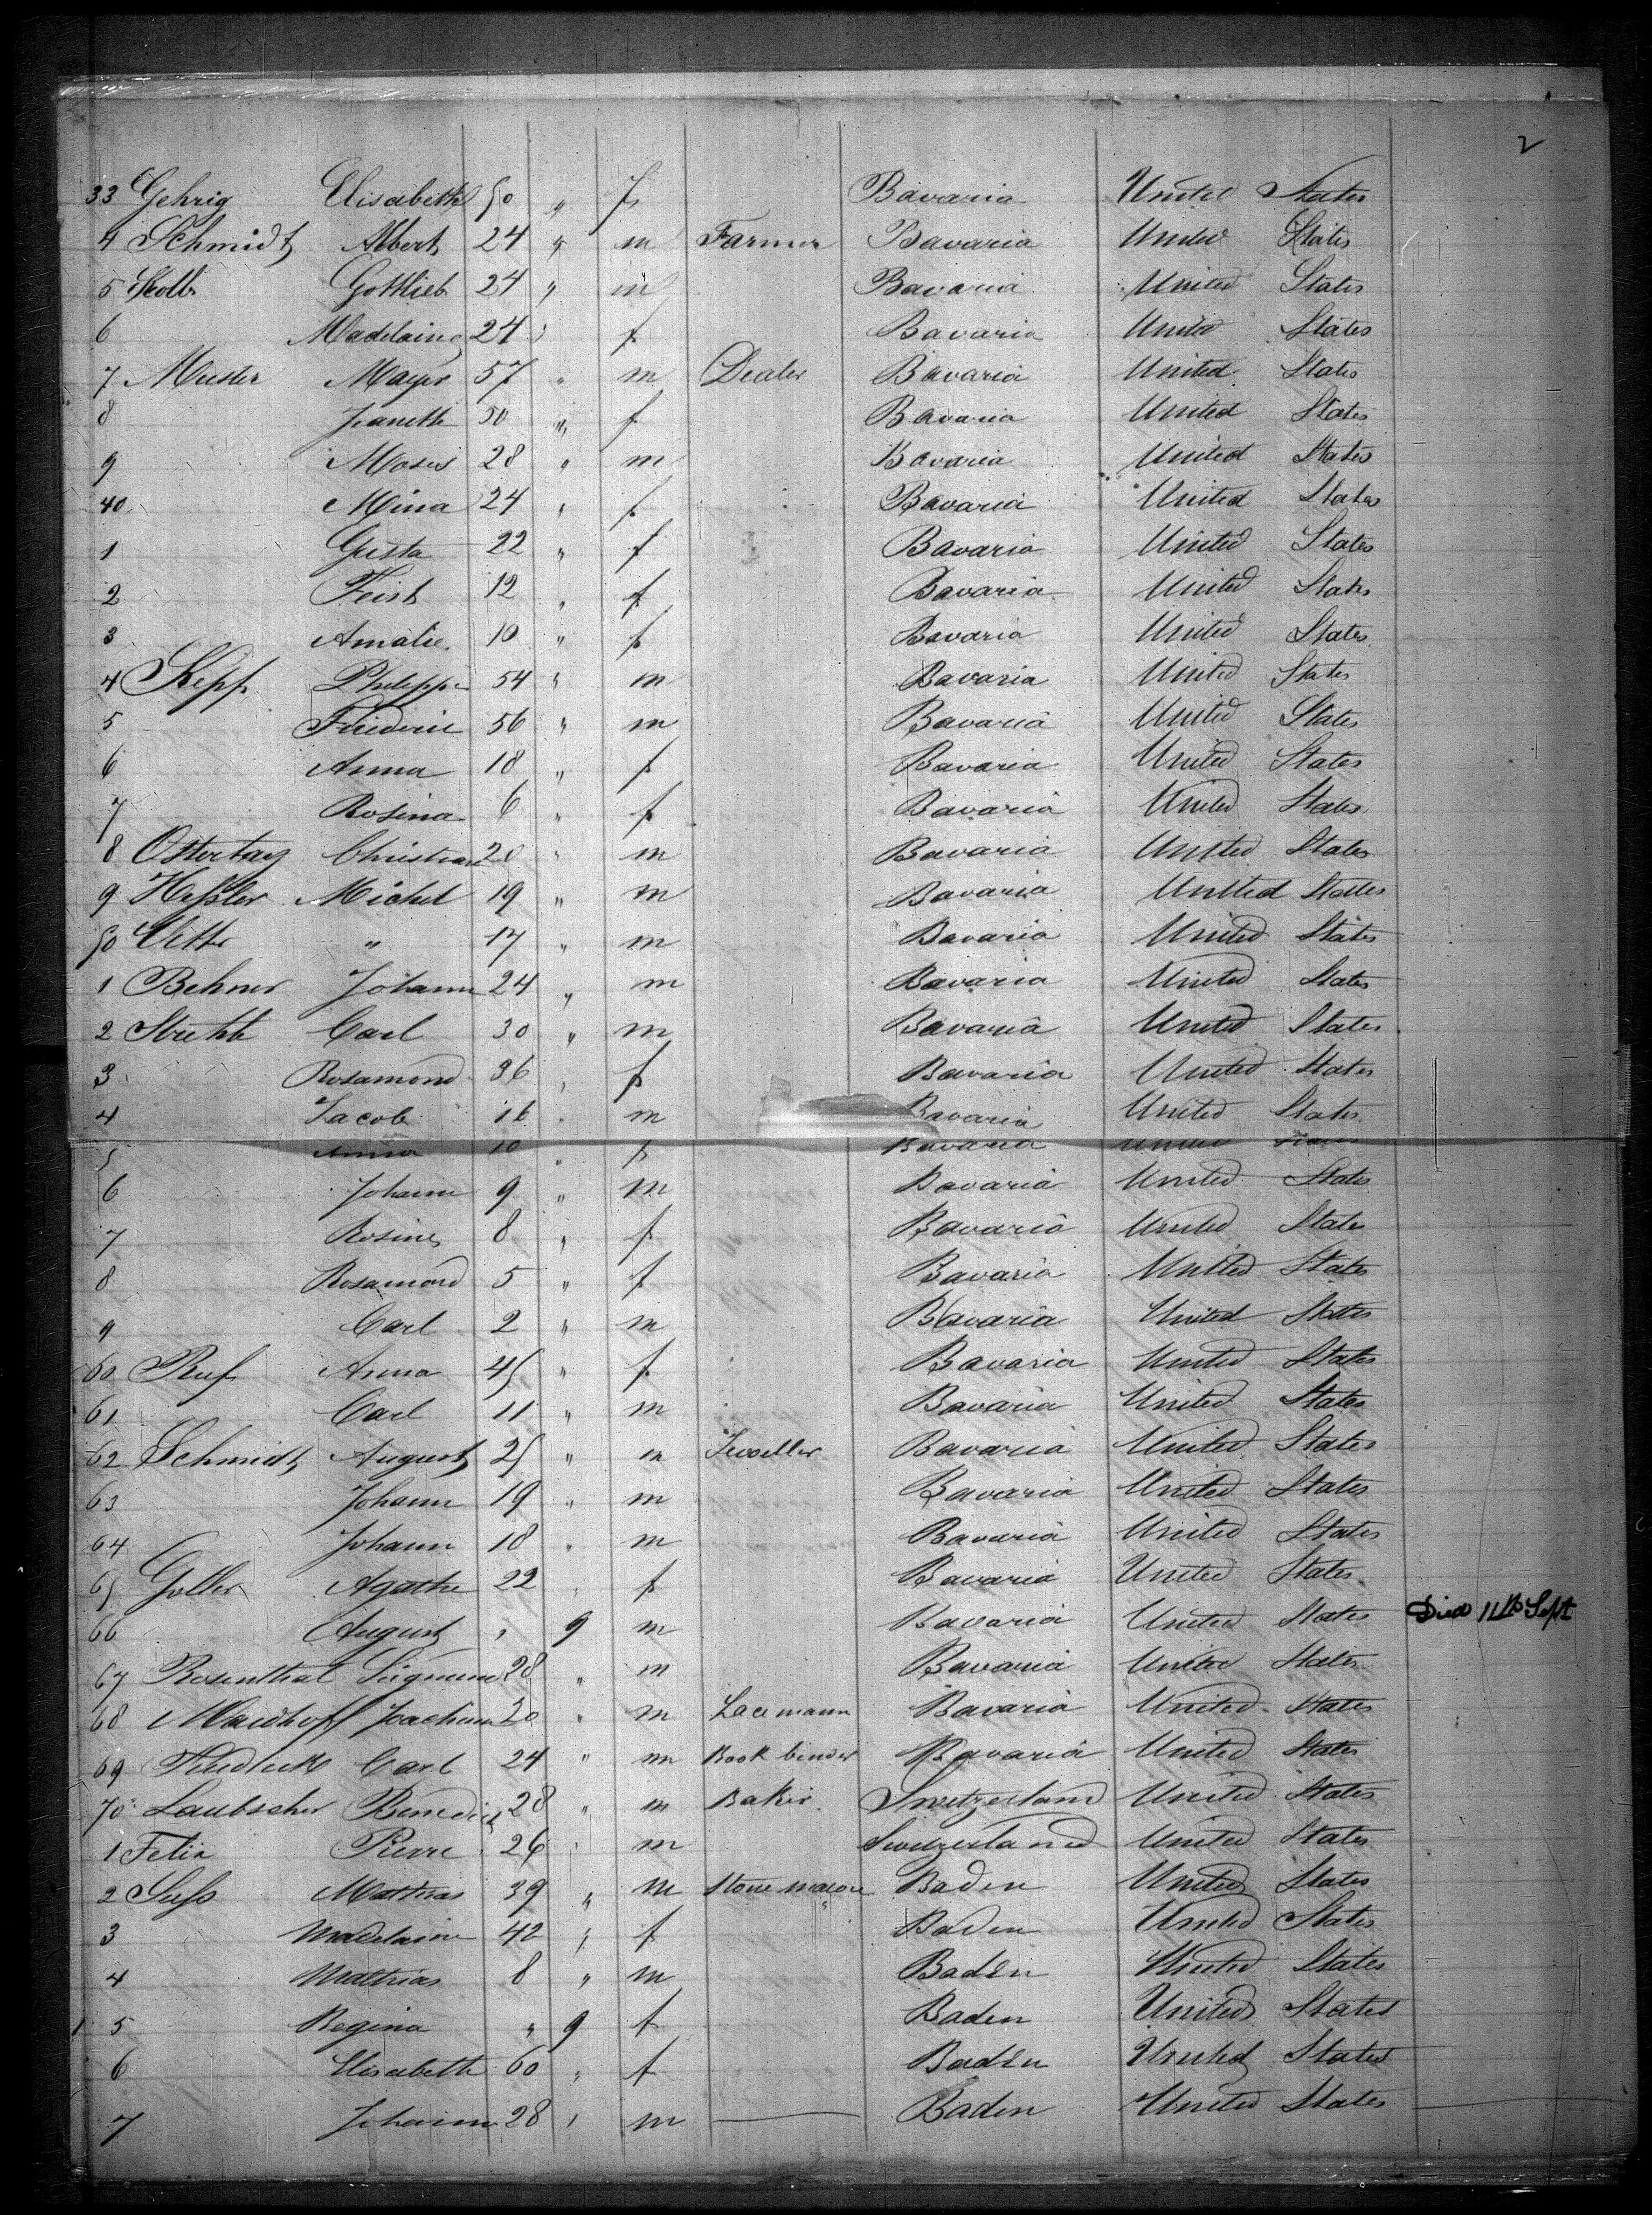 2
33 Gehrig Elisabeth 50 " f Bavaria United States
4 Schmidt Albert 24 " m Farmer Bavaria United States
5 Kolb Gottlieb 24 " m Bavaria United States
6 Madelaine 24 " f Bavaria United States
7 Mayer 57 " m Dealer Bavaria United States
8 Jeanette 50 " f Bavaria United States
9 Moses 28 " m Bavaria United States
40 Mina 24 " f Bavaria United States
1 Gusta 22 " f Bavaria United States
2 Feist 12 " f Bavaria United States
3 Amalie 10 " f Bavaria United States
4 Philipp 54 " m Bavaria United States
5 56 " m Bavaria United States
6 Anna 18 " f Bavaria United States
7 Rosina 6 " f Bavaria United States
8 Ostertag Christian 20 " m Bavaria United States
9 Heßler Michel 19 " m Bavaria United States
50 Vetter " 17 " m Bavaria United States
1 Behner Johann 24 " m Bavaria United States
2 Carl 30 " m Bavaria United States
3 Rosamond 36 " f Bavaria United States
4 Jacob 16 " m Bavaria United States
5 Anna 10 " f Bavaria United States
6 Johann 9 " m Bavaria United States
7 Rosine 8 " f Bavaria United States
8 Rosamond 5 " f Bavaria United States
9 Carl 2 " m Bavaria United States
60 Ruf Anna 45 " f Bavaria United States
61 Carl 11 " m Bavaria United States
62 Schmidt August 25 " m Jeweller Bavaria United States
63 Johann 19 " m Bavaria United States
64 Johann 18 " m Bavaria United States
65 Goller Agathe 22 " f Bavaria United States
66 August " 9 m Bavaria United States Died 11th Sept
67 Rosenthal Sigmund 28 " m Bavaria United States
68 Maidhoff Joachim 20 " m Laceman Bavaria United States
69 Carl 24 " m Book binder Bavaria United States
70 Laubscher Benedict 28 " m Baker Switzerland United States
1 Felix Pierre 26 " m Switzerland United States
2 Suß Mathias 39 " m Stone mason Baden United States
3 Madelaine 42 " f Baden United States
4 Mathias 8 " m Baden United States
5 Regina " 9 f Baden United States
6 Elisabeth 60 " f Baden United States
7 Johann 28 " m Baden United States